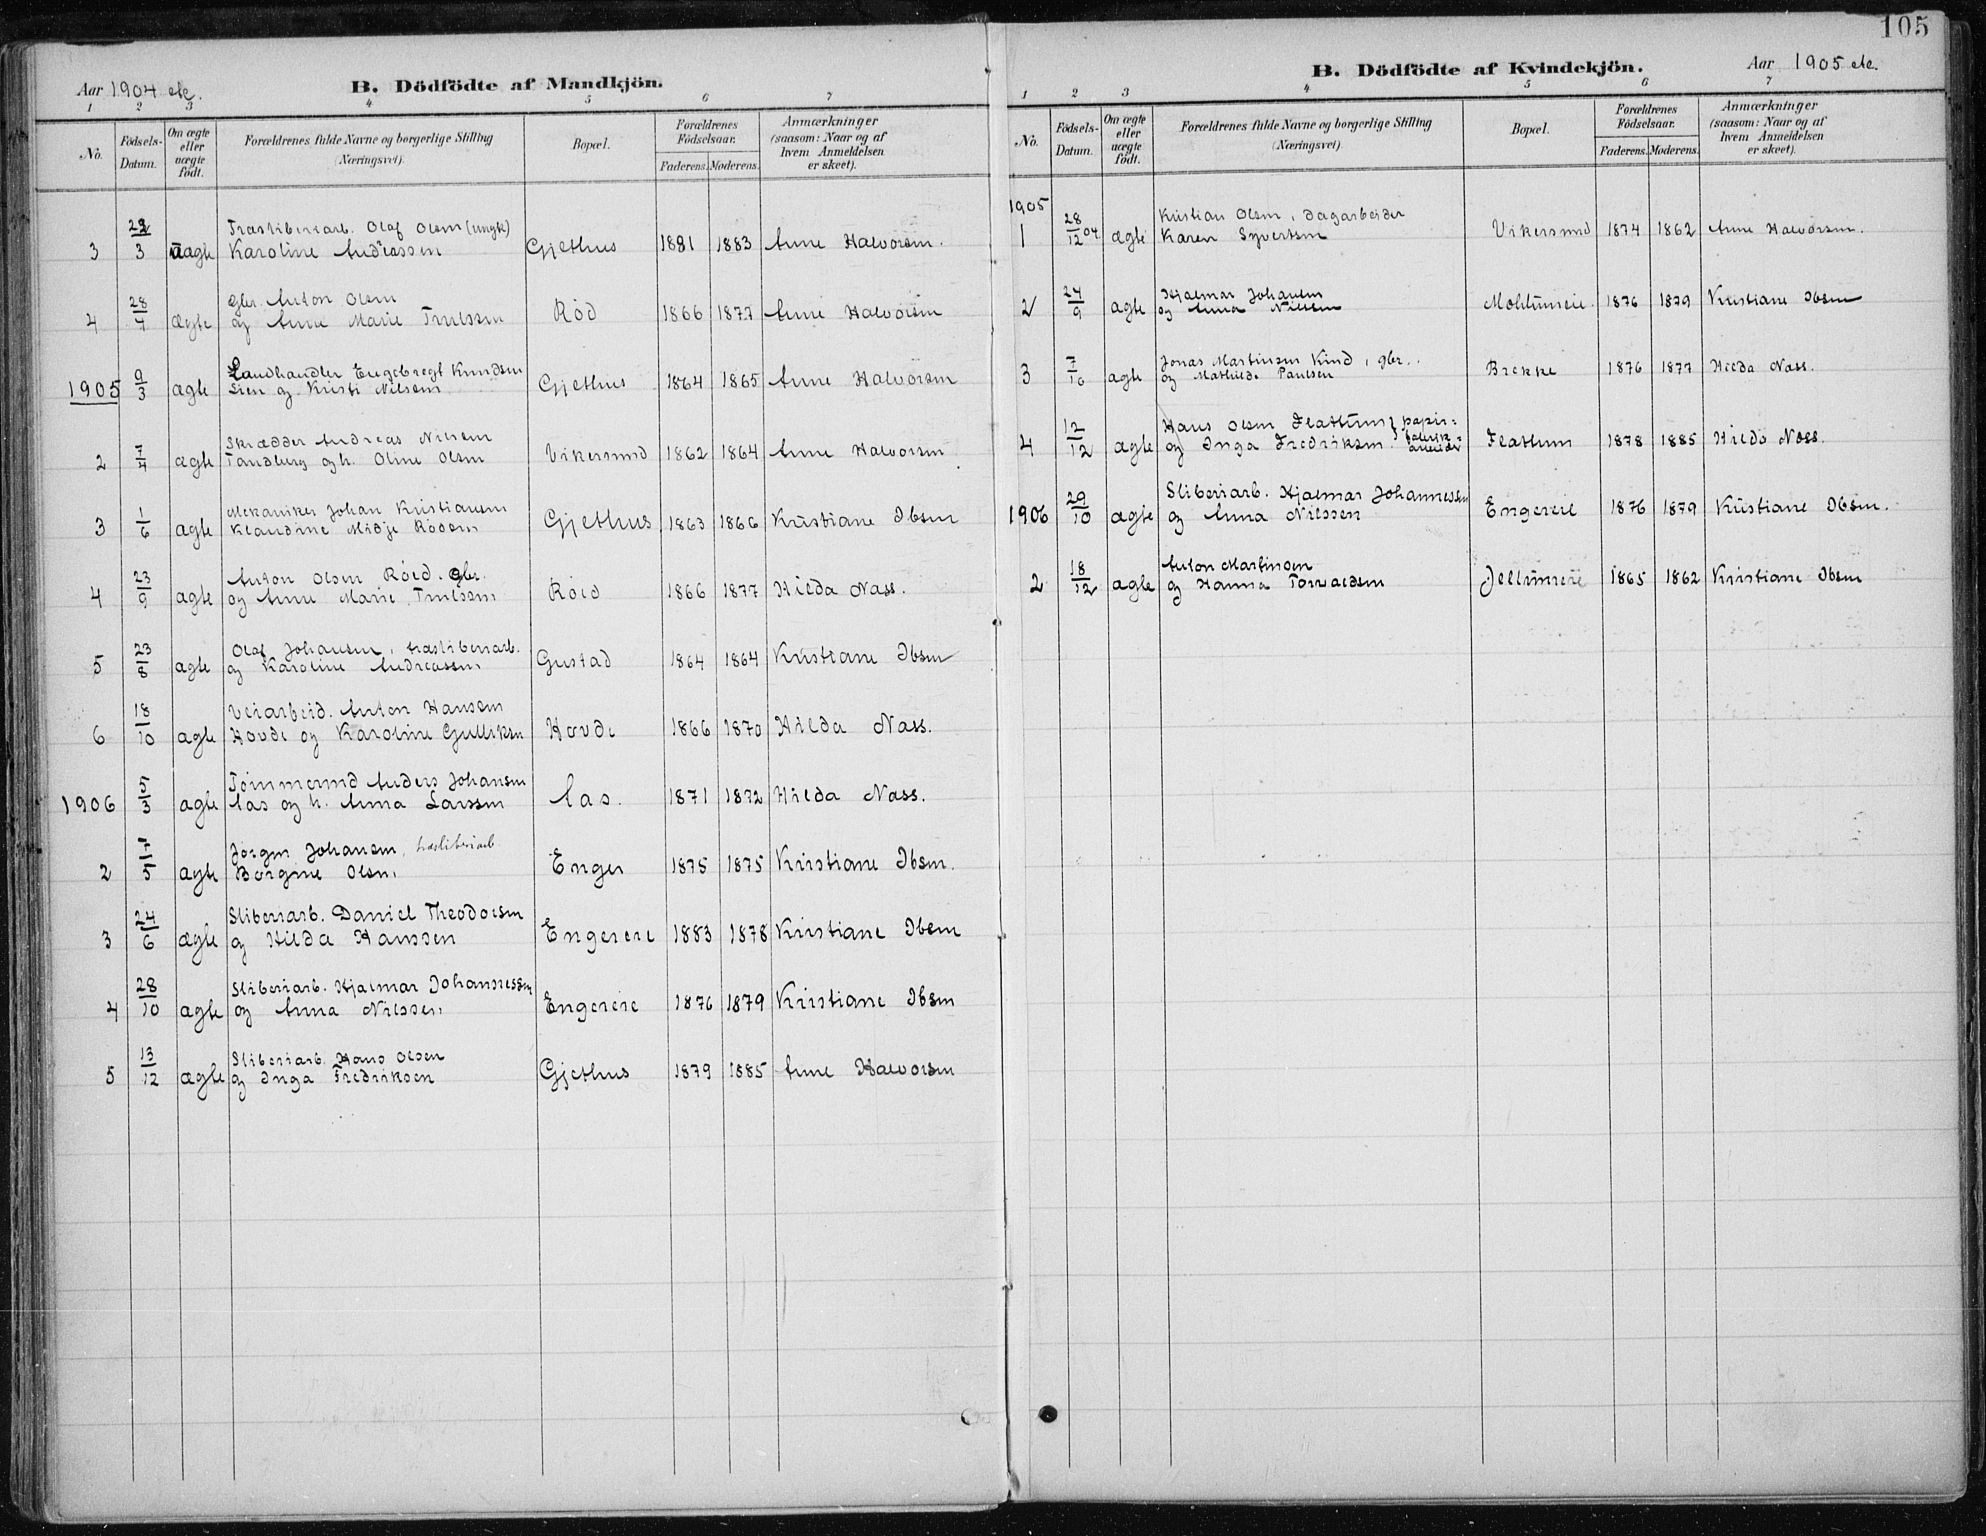 105
Aar 1904 etc.
B. Dödfödte af Mandkjön.
1 2 3 4 5 6 7
No.
Födsels-Datum.
Om ægte eller uægte födt.
Forældrenes fulde Navne og borgerlige Stilling (Næringsvei).
Bopæl.
Forældrenes Födselsaar.
Faderens. Moderens.
Anmærkninger (saasom: Naar og af hvem Anmeldelsen er skeet).
3 23/3 uægte Træsliberiarb. Olaf Olsen (ungk)
Karoline Andreassen Gjethus 1881 1883 Anne Halvorsen.
4 28/4 ægte gbr. Anton Olsen
og Anne Marie Trulssen Röd 1866 1877 Anne Halvorsen
1905 9/3 ægte Landhandler Engebregt Knudsen
Lien og Kristi Nilsen Gjethus 1864 1865 Anne Halvorsen
2 7/4 ægte Skrædder Andreas Nilsen
Tandberg og h. Oline Olsen Vikersund 1862 1864 Anne Halvorsen
3 1/6 ægte Mekaniker Johan Kristiansen
Klaudine Midje Rodsen Gjethus 1863 1866 Kristiane Ibsen
4 23/9 ægte Anton Olsen Röed. gbr.
og Anne Marie Trulssen Röed 1866 1877 Hilda Næss.
5 23/8 ægte Olaf Johansen, træsliberiarb.
og Karoline Andreassen Gustad 1864 1864 Kristiane Ibsen
6 18/10 ægte Veiarbeid. Anton Hansen
Hovde og Karoline Gulliksen Hovde 1866 1870 Hilda Næss.
1906 5/3 ægte Tömmermd Anders Johansen
Aas og h. Anna Larssen Aas. 1871 1872 Hilda Næss.
2 /5 ægte Jörgen Johansen, træsliberiarb
Borgine Olsen, Enger 1875 1875 Kristiane Ibsen.
3 24/6 ægte Sliberiarb. Daniel Theodorsen
og Hilda Hanssen Engereie 1883 1878 Kristiane Ibsen
4 28/10 ægte Sliberiarb. Hjalmar Johannessen
og Anna Nilssen Engereie 1876 1879 Kristiane Ibsen
5 13/12 ægte Sliberiarb. Hans Olsen
og Inga Fredriksen Gjethus 1879 1885 Anne Halvorsen
B. Dödfödte af Kvindekjön.
Aar 1905 etc.
1 2 3 4 5 6 7
No.
Födsels-Datum.
Om ægte eller uægte födt.
Forældrenes fulde Navne og borgerlige Stilling (Næringsvei).
Bopæl.
Forældrenes Födselsaar.
Faderens. Moderens.
Anmærkninger (saasom: Naar og af hvem Anmeldelsen er skeet).
1905
1 28/12 04 ægte Kristian Olsen, dagarbeider
Karen Syvertsen Vikersund 1874 1862 Anne Halvorsen.
2 24/9 ægte Hjalmar Johansen
og Anna Nielsen 1876 1879 Kristiane Ibsen
3 7/10 ægte Jonas Martinsen Kind, gbr.
og Mathilde Paulsen Brekke 1876 1877 Hilda Næss.
4 12/12 ægte Hans Olsen Flattum } papir=
og Inga Fredriksen } fabrik=arbeider Flattum 1878 1885 Hilda Næss.
1906 29/10 ægte Sliberiarb. Hjalmar Johannessen
og Anna Nilssen Engereie 1876 1879 Kristiane Ibsen.
2 18/12 ægte Anton Martinsen
og Hanna Torvaldsen Jellumeie 1865 1862 Kristiane Ibsen